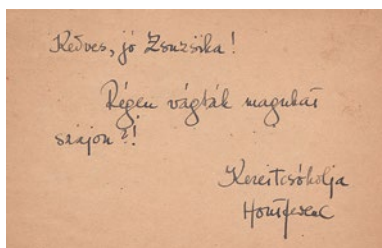 Kedves, jó Zsuzsika!
Régen vágták magukat
szájon?!
Kezeitcsókolja
Hontferenc